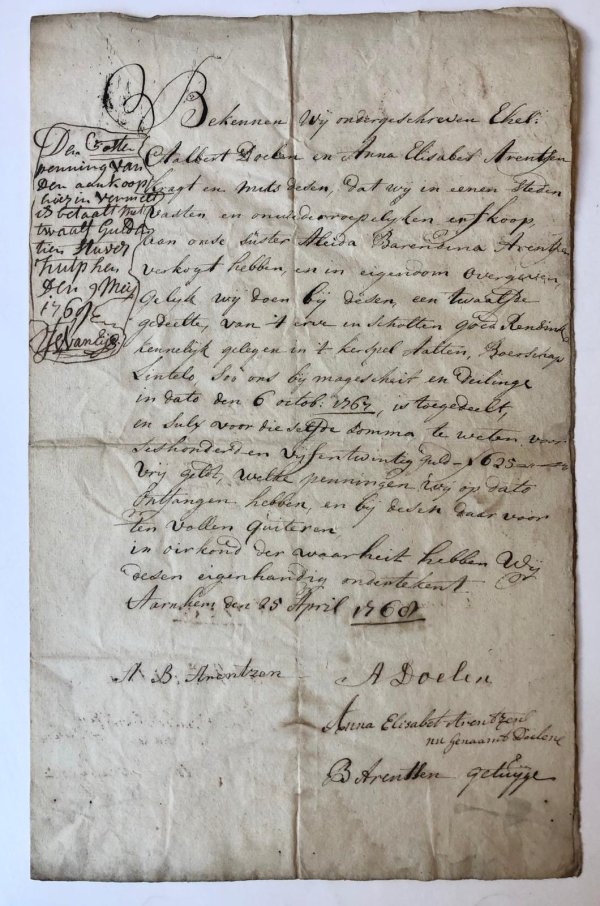 Bekennen Wij ondergeschreven Ehel:
Aalbert Doelen en Anna Elisabet Arentsen
kragt en mits desen, dat wij in eenen steden
vasten en onwederroepelyken erfkoop,
van onse suster Aleida Barendina Arentsen
verkogt hebben, en in eigendom overgeven
Gelijk wij doen bij desen, een twaalfde
gedeelte, van 't erve en scholten goed Rendink
kennelijk gelegen in 't kerspel Aalten, Boerschap
Lintelo, soo ons bij magescheit en deilinge
in dato den 6 octob: 1767, is toegedeelt,
en sulx voor die selfde somma, te weten voor
seshonderd en vyfentwintig guld - 1625
vrij geld, welke penningen wij op dato
ontfangen hebben, en bij desen daar voor
ten vollen quiteren
in oirkond der waarheit hebben Wij
desen eigenhandig ondertekent.
Aarnhem den 25 April 1768
Den 50sten
penning van
Den aankoop
hier in vermelt
is betaalt met
twaalf Gulden
tien stuver
Zutphen
Den 9 Mei
1768
A. B. Arentzen
A Doelen
Anna Elisabet Arentzen
nu Genaamt Doelene
B Arentsen getuijge